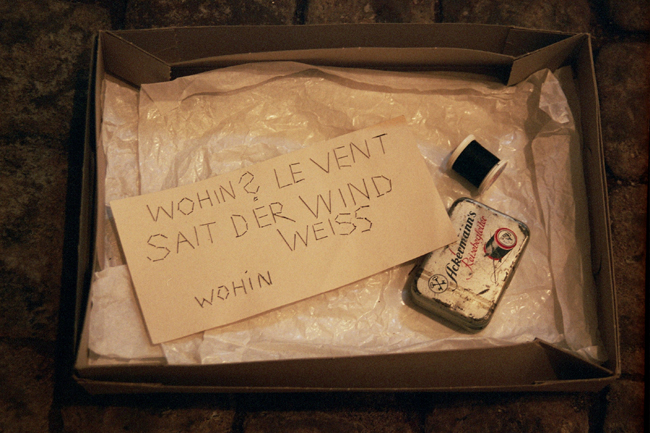 WOHIN? LE VENT
SAIT DER WIND
WEISS
WOHIN
Ackermann's
Reisebegleiter